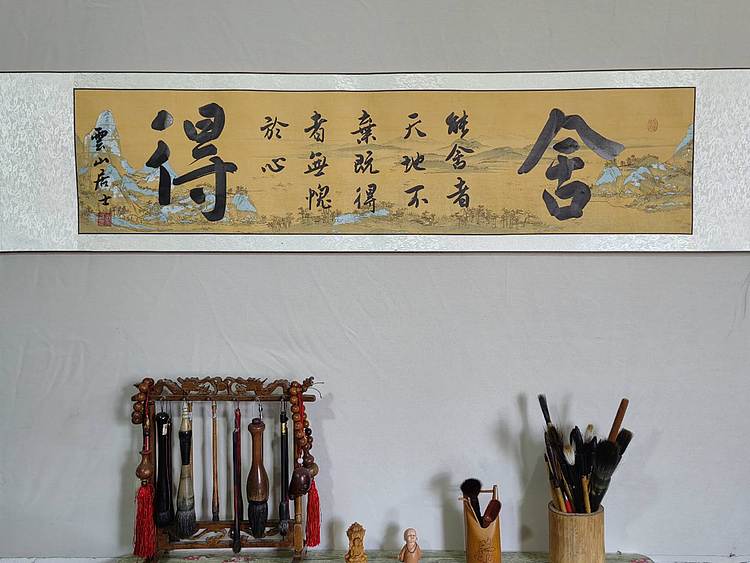 舍
能舍者
天地不
棄既得
者無愧
於心
得
雲山居士